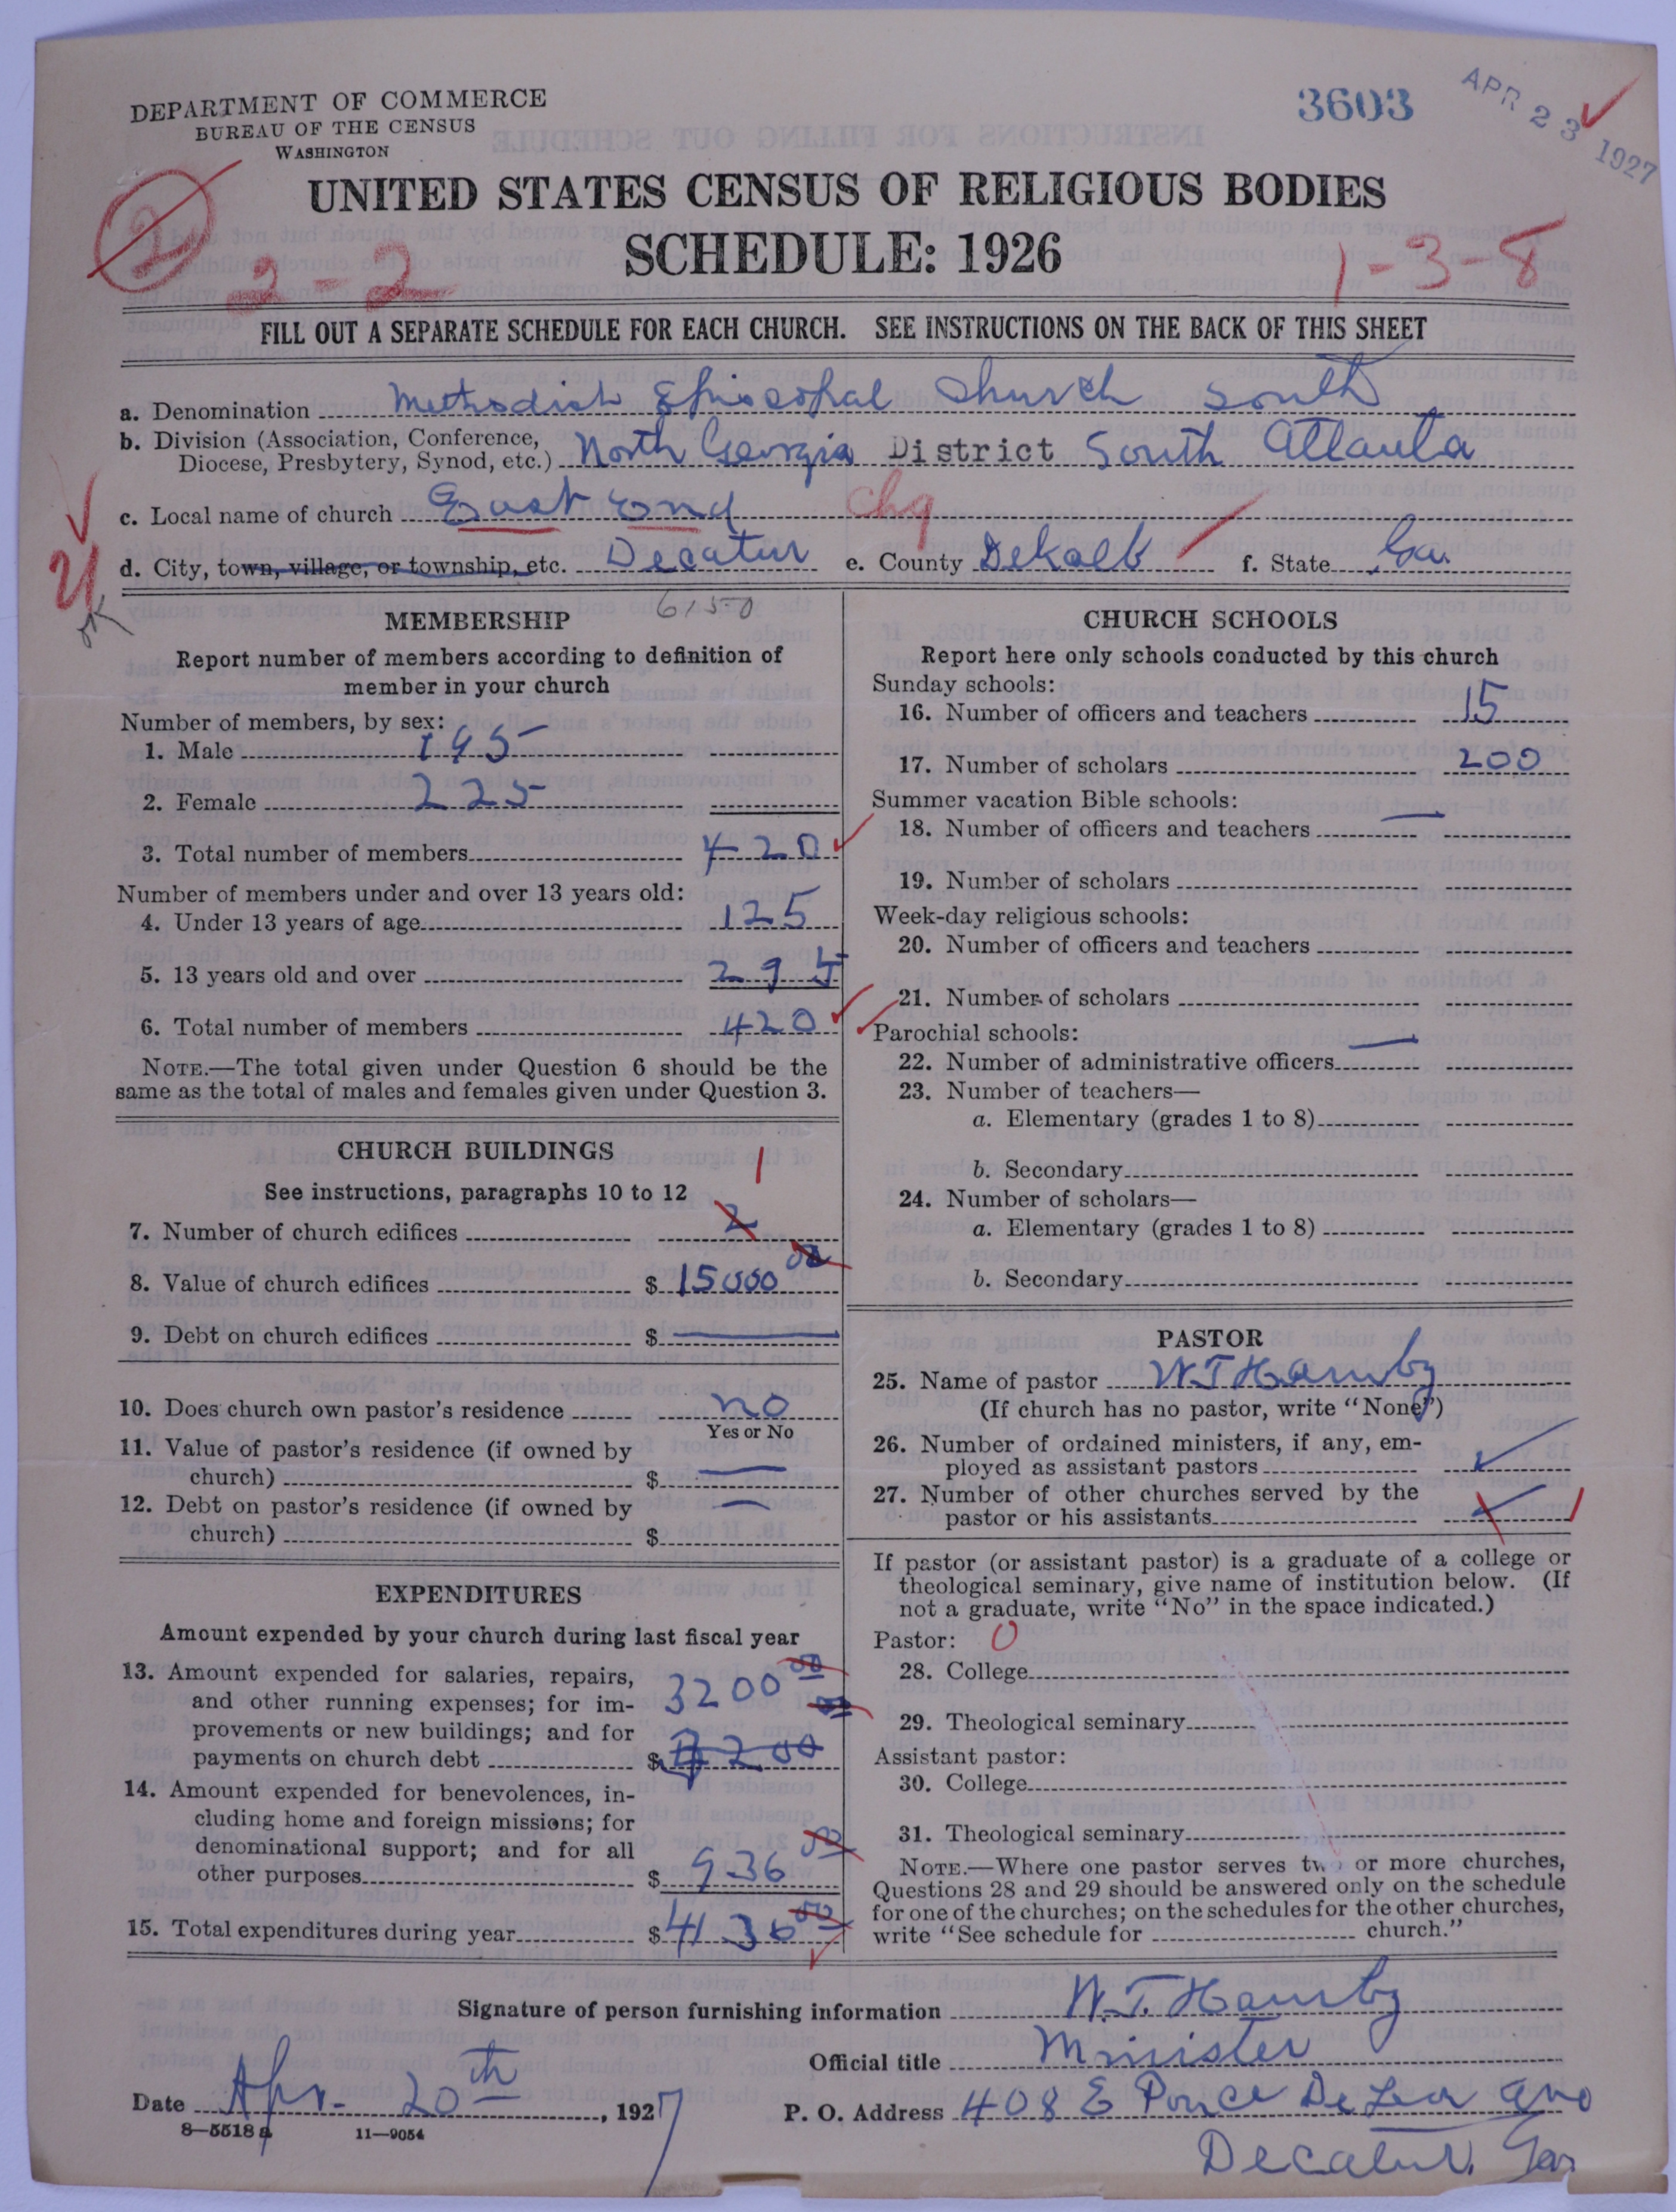 DEPARTMENT OF COMMERCE
BUREAU OF THE CENSUS
WASHINGTON
3603
APR 23 1927
UNITED STATES CENSUS OF RELIGIOUS BODIES
SCHEDULE: 1926
2
2-2
1-3-8
FILL OUT A SEPARATE SCHEDULE FOR EACH CHURCH. SEE INSTRUCTIONS ON THE BACK OF THIS SHEET
a. Denomination Methodist Episcopal Church South
b. Division (Association, Conference, Diocese, Presbytery, Synod, etc.) North Georgia District South Atlanta
c. Local name of church East End chg
d. City, town, village, or township, etc. Decatur e. County Dekalb f. State Ga.
6150
OK
MEMBERSHIP
Report number of members according to definition of
member in your church
Number of members, by sex:
1. Male 195
2. Female 225
3. Total number of members 420
Number of members under and over 13 years old:
4. Under 13 years of age 125
5. 13 years old and over 295
6. Total number of members 420
NOTE.—The total given under Question 6 should be the
same as the total of males and females given under Question 3.
CHURCH BUILDINGS
See instructions, paragraphs 10 to 12
1
7. Number of church edifices 2
8. Value of church edifices $ 15000 00
9. Debt on church edifices $ —
10. Does church own pastor's residence no
Yes or No
11. Value of pastor's residence (if owned by
church) $ —
12. Debt on pastor's residence (if owned by
church) $ —
EXPENDITURES
Amount expended by your church during last fiscal year
13. Amount expended for salaries, repairs,
and other running expenses; for im-
provements or new buildings; and for
payments on church debt $ 3200 00
14. Amount expended for benevolences, in-
cluding home and foreign missions; for
denominational support; and for all
other purposes $ 936 00
15. Total expenditures during year $ 4136 00
CHURCH SCHOOLS
Report here only schools conducted by this church
Sunday schools:
16. Number of officers and teachers 15
17. Number of scholars 200
Summer vacation Bible schools:
18. Number of officers and teachers —
19. Number of scholars
Week-day religious schools:
20. Number of officers and teachers
21. Number of scholars
Parochial schools:
22. Number of administrative officers —
23. Number of teachers—
a. Elementary (grades 1 to 8)
b. Secondary
24. Number of scholars—
a. Elementary (grades 1 to 8)
b. Secondary
PASTOR
25. Name of pastor W T Hamby
(If church has no pastor, write "None")
26. Number of ordained ministers, if any, em-
ployed as assistant pastors
27. Number of other churches served by the
pastor or his assistants
If pastor (or assistant pastor) is a graduate of a college or
theological seminary, give name of institution below. (If
not a graduate, write "No" in the space indicated.)
Pastor: 0
28. College
29. Theological seminary
Assistant pastor:
30. College
31. Theological seminary
NOTE.—Where one pastor serves two or more churches,
Questions 28 and 29 should be answered only on the schedule
for one of the churches; on the schedules for the other churches,
write "See schedule for church."
Signature of person furnishing information W. T. Hamby
Official title Minister
Date Apr. 20th, 1927 P. O. Address 408 E Ponce De Leon Ave
8—5518 a 11—9054
Decatur, Ga